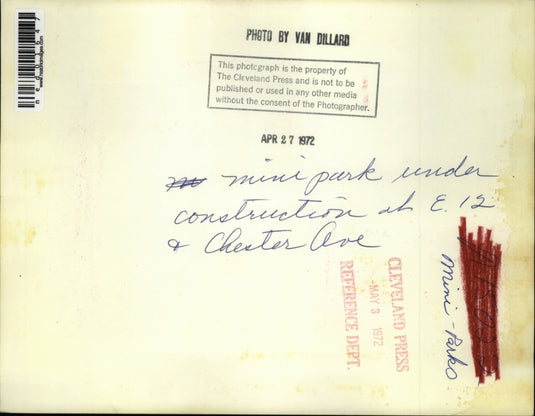 PHOTO BY VAN DILLARD
This photograph is the property of
The Cleveland Press and is not to be
published or used in any other media
without the consent of the Photographer.
APR 27 1972
mini park under
construction at E. 12
& Chester Ave
CLEVELAND PRESS
MAY 3 1972
REFERENCE DEPT.
Mini-Parks